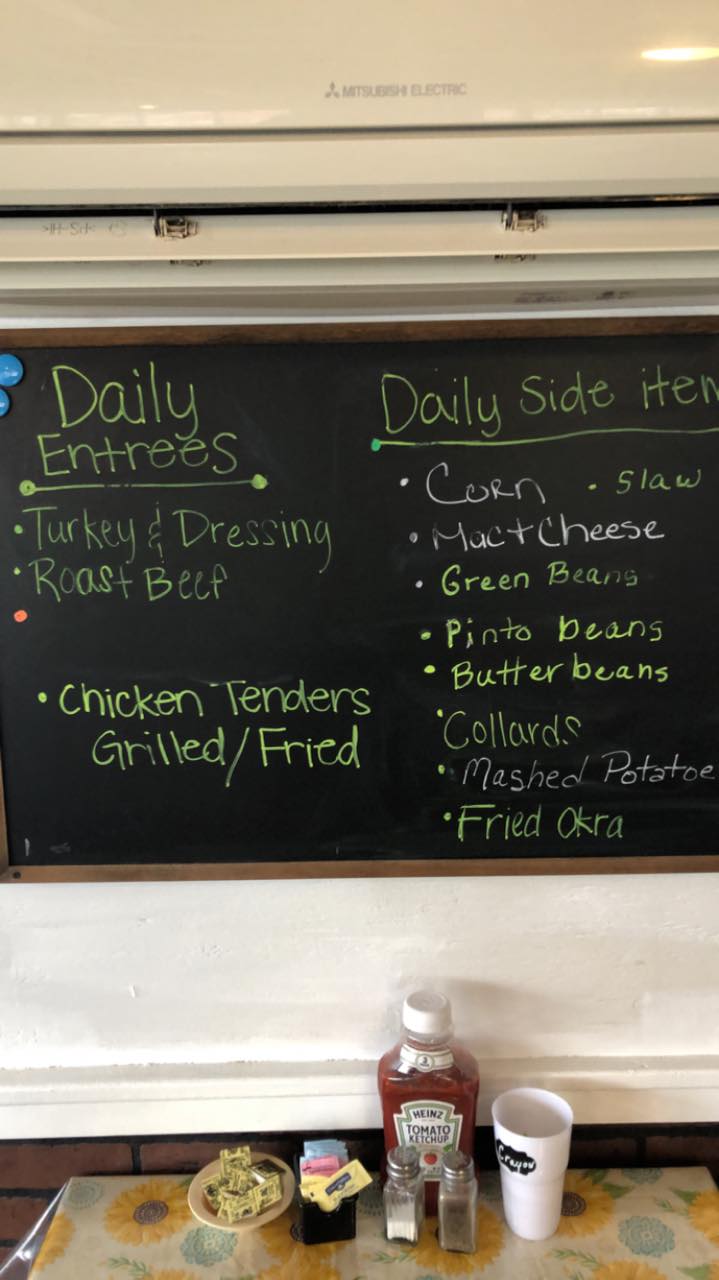 MITSUBISHI ELECTRIC
Daily
Entrees
• Turkey & Dressing
• Roast Beef
• Chicken Tenders
Grilled/Fried
Daily Side item
• Corn • Slaw
• Mac + Cheese
• Green Beans
• Pinto beans
• Butterbeans
• Collards
• Mashed Potatoe
• Fried Okra
HEINZ
TOMATO
KETCHUP
Crayons